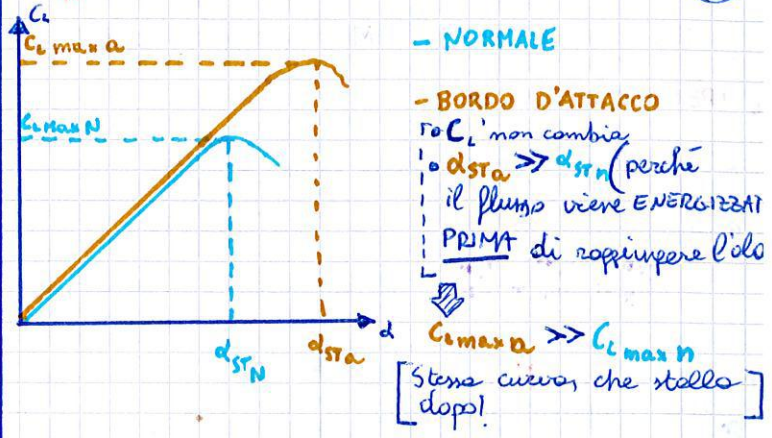 CL
CL max a
CL Max N
α
αST N
αST a
- NORMALE
- BORDO D'ATTACCO
• CL' non cambia
• αST a >> αST n (perché
il flusso viene ENERGIZZAT
PRIMA di raggiungere l'ala
CL max a >> CL max n
[Stessa curva, che stalla
dopo!]